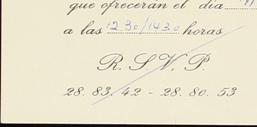 que ofrecerán el día
a las 1230/1430 horas
R. S. V. P.
28. 83. 42 - 28. 80. 53